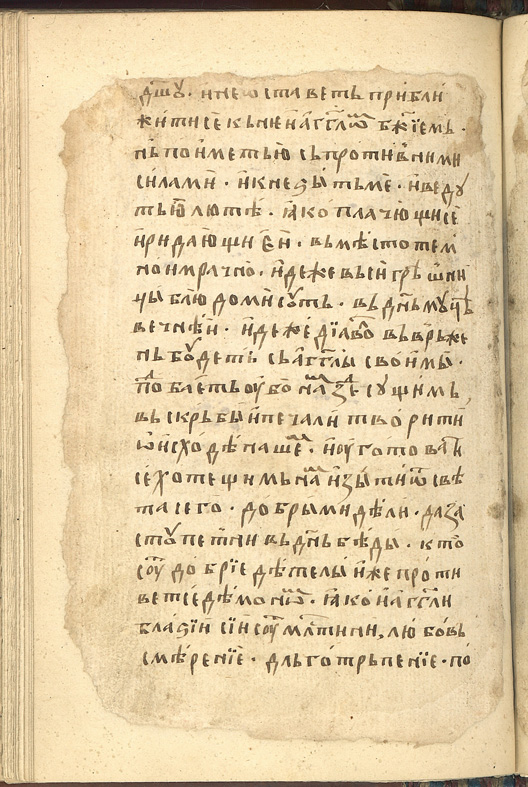 дш҃ꙋ · и не ѡставеть прибли
житисе кь нѥи агг҃лѡⷨ бж҃їемь ·
нь поиметь ю сьпротивними
силами · и кнеѕы тьме · и веду
ть ю лютѣ · ꙗко плачющисе
и ридающи ѥи · вь мѣсто тем
но и мрачно · идеже вьси грѣшни
цы блюдоми сꙋть · вь днь мꙋчⷩѣ
вечнѣи · идеже дїаво вьврьже
нь бꙋдеть сь агг҃лы своими ·
пⷣобаеть ꙋбо наⷨ зⷣе сущимь ,
вь скрьбы и печали творити
ѡ исходѣ нашеⷨ · и ꙋготоваⷡ
се хотещимь наⷨ изыти ѿ свѣ
та сего · добрыми дѣли · да за
стꙋпетни вь днь бѣды · кто
сꙋ добрїе дѣтелы иже проти
ветсе демонѡⷨ · ꙗко и агг҃ли
блаѕїи сїи сꙋ мл҃тини , любовь
смѣренїе · дльготрьпенїе · по